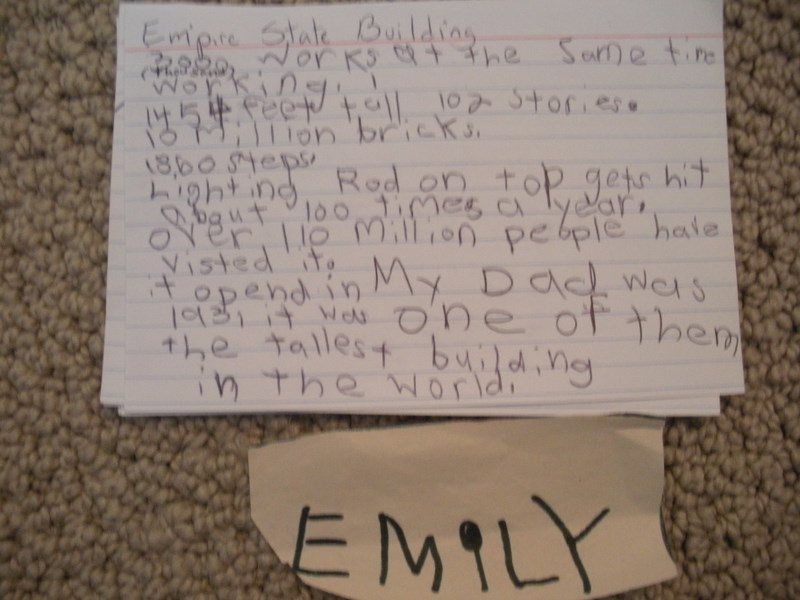 Empire State Building
3000 works at the same time
(thousand)
working.
1454 feet tall 102 stories.
10 Million bricks.
1860 steps.
Lighting Rod on top gets hit
about 100 times a year.
over 110 million people have
visted it.
it opend in My Dad was
1931 it was one of them
the tallest building
in the world.
EMiLY